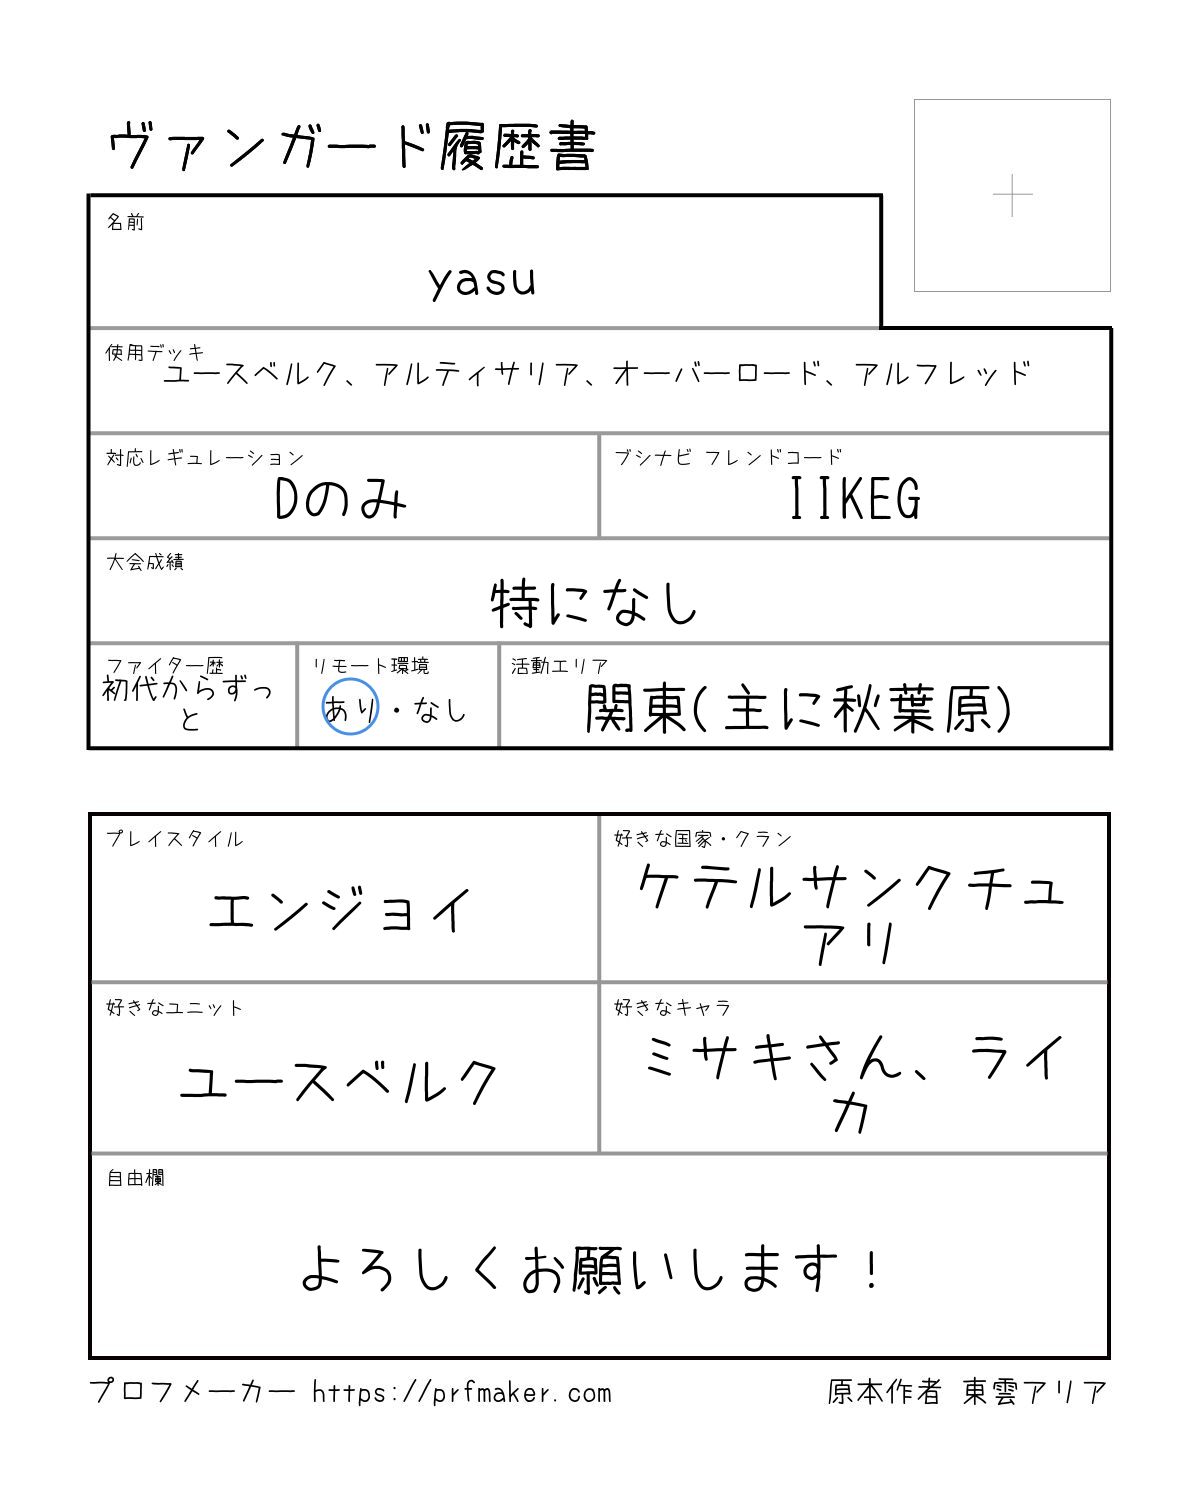 ヴァンガード履歴書
名前
yasu
使用デッキ
ユースベルク、アルティサリア、オーバーロード、アルフレッド
対応レギュレーション
Dのみ
ブシナビ フレンドコード
IIKEG
大会成績
特になし
ファイター歴
初代からずっ
と
リモート環境
あり・なし
活動エリア
関東(主に秋葉原)
プレイスタイル
エンジョイ
好きな国家・クラン
ケテルサンクチュ
アリ
好きなユニット
ユースベルク
好きなキャラ
ミサキさん、ライ
カ
自由欄
よろしくお願いします！
プロフメーカー https://prfmaker.com
原本作者 東雲アリア